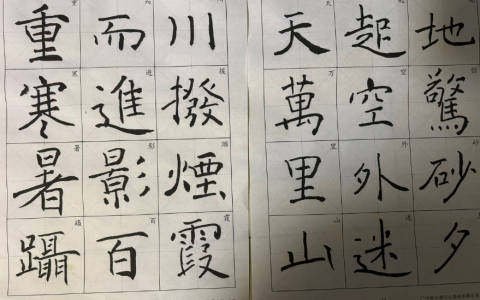 地驚砂夕
起空外迷
天萬里山
川撥煙霞
而進影百
重寒暑躡